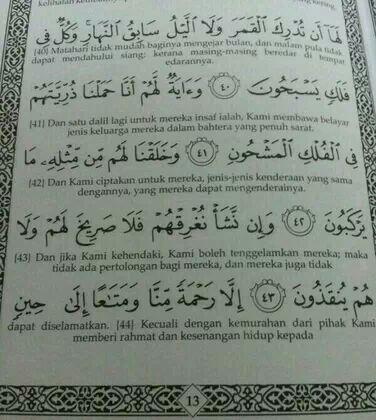 لَهَا أَن تُدْرِكَ الْقَمَرَ وَلَا الَّيْلُ سَابِقُ النَّهَارِ ۚ وَكُلٌّ فِى
[40] Matahari tidak mudah baginya mengejar bulan, dan malam pula tidak
dapat mendahului siang; kerana masing-masing beredar di tempat
edarannya.
فَلَكٍ يَسْبَحُونَ ٤٠ وَءَايَةٌ لَّهُمْ أَنَّا حَمَلْنَا ذُرِّيَّتَهُمْ
[41] Dan satu dalil lagi untuk mereka insaf ialah, Kami membawa belayar
jenis keluarga mereka dalam bahtera yang penuh sarat.
فِى الْفُلْكِ الْمَشْحُونِ ٤١ وَخَلَقْنَا لَهُم مِّن مِّثْلِهِۦ مَا
[42] Dan Kami ciptakan untuk mereka, jenis-jenis kenderaan yang sama
dengannya, yang mereka dapat mengenderainya.
يَرْكَبُونَ ٤٢ وَإِن نَّشَأْ نُغْرِقْهُمْ فَلَا صَرِيخَ لَهُمْ وَلَا
[43] Dan jika Kami kehendaki, Kami boleh tenggelamkan mereka; maka
tidak ada pertolongan bagi mereka, dan mereka juga tidak
هُمْ يُنقَذُونَ ٤٣ إِلَّا رَحْمَةً مِّنَّا وَمَتَاعًا إِلَىٰ حِينٍ
dapat diselamatkan. [44] Kecuali dengan kemurahan dari pihak Kami
memberi rahmat dan kesenangan hidup kepada
13